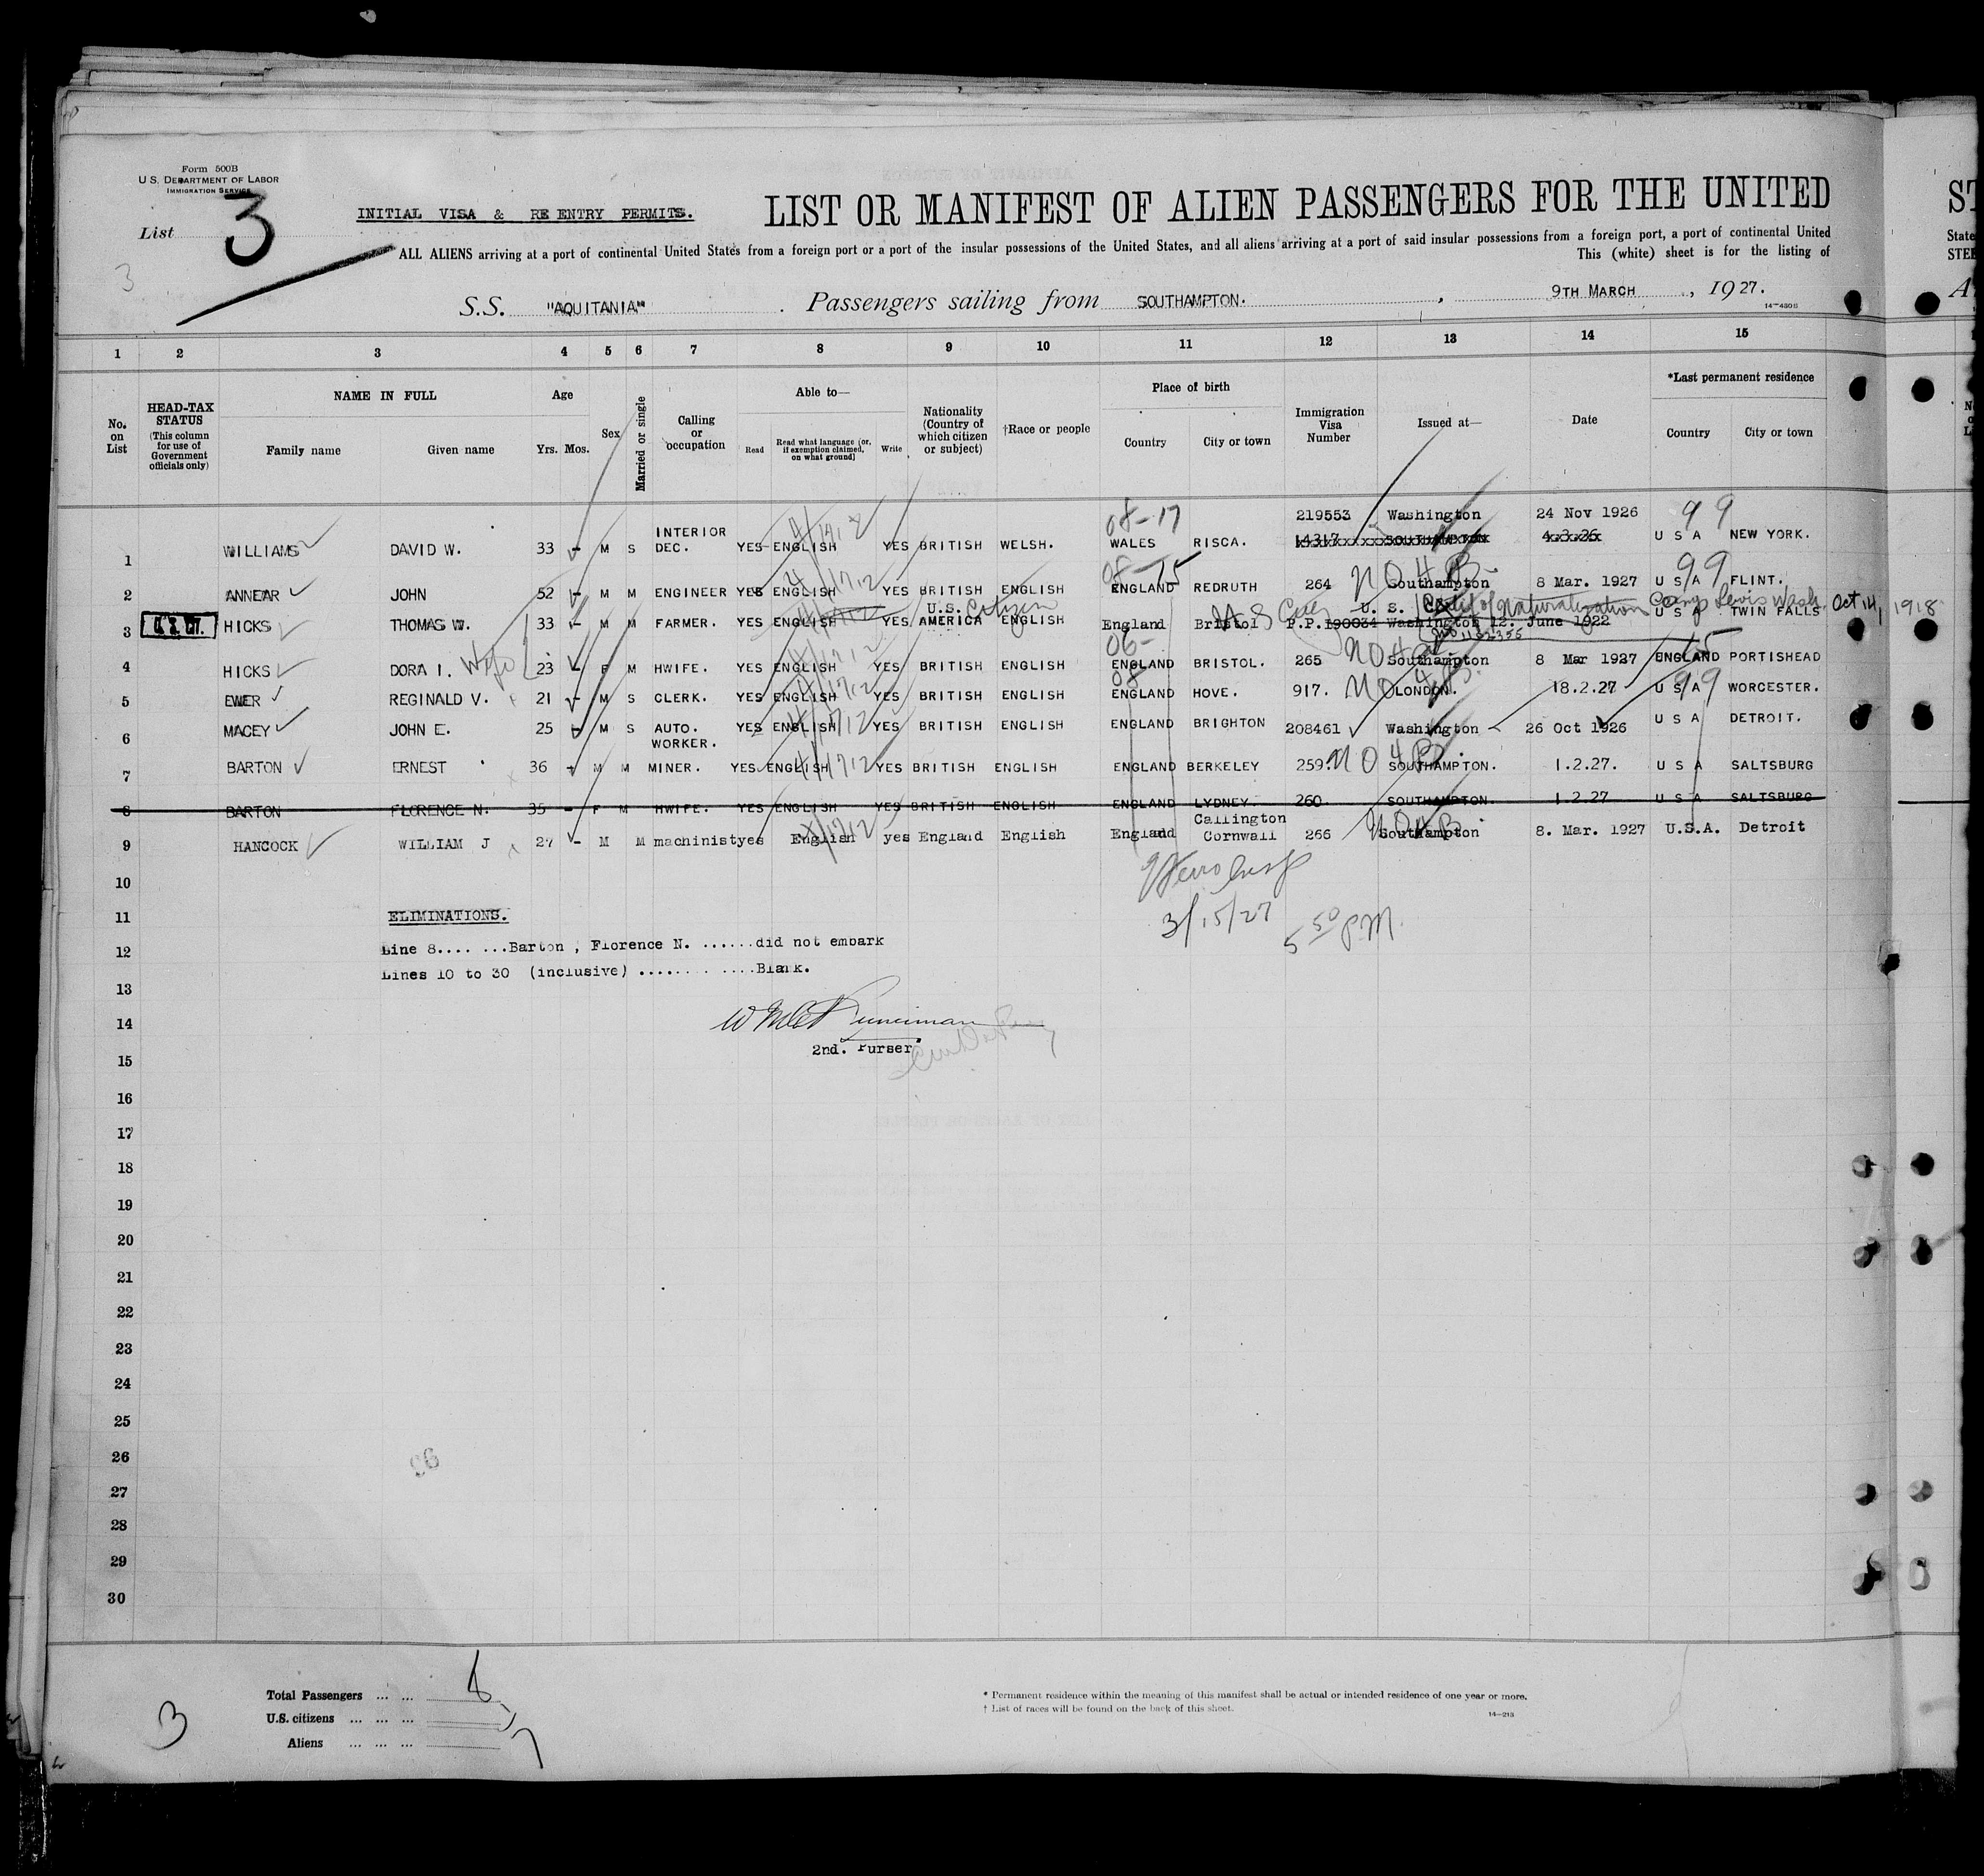 Form 500B
U.S. DEPARTMENT OF LABOR
IMMIGRATION SERVICE
List 3
3
INITIAL VISA & RE ENTRY PERMITS.
LIST OR MANIFEST OF ALIEN PASSENGERS FOR THE UNITED
ALL ALIENS arriving at a port of continental United States from a foreign port or a port of the insular possessions of the United States, and all aliens arriving at a port of said insular possessions from a foreign port, a port of continental United
This (white) sheet is for the listing of
S.S. "AQUITANIA" . Passengers sailing from SOUTHAMPTON. , 9TH MARCH , 1927.
14-430B
1 2 3 4 5 6 7 8 9 10 11 12 13 14 15
No. on List
HEAD-TAX STATUS (This column for use of Government officials only)
NAME IN FULL
Family name Given name
Age
Yrs. Mos.
Sex
Married or single
Calling or occupation
Able to—
Read
Read what language (or, if exemption claimed, on what ground)
Write
Nationality (Country of which citizen or subject)
†Race or people
Place of birth
Country City or town
Immigration Visa Number
Issued at—
Date
*Last permanent residence
Country City or town
08-17 219553 Washington 24 Nov 1926 99
1 WILLIAMS DAVID W. 33 - M S INTERIOR DEC. YES ENGLISH YES BRITISH WELSH. WALES RISCA. 14317 SOUTHAMPTON 4.3.26 U S A NEW YORK.
2 ANNEAR JOHN 52 - M M ENGINEER YES ENGLISH YES BRITISH ENGLISH ENGLAND REDRUTH 264 NO 4 B Southampton 8 Mar. 1927 U S A FLINT. 99
U.S. Citizen U.S. Citz U. S. Certif of Naturalization Camp Lewis Wash. Oct 14, 1918
3 HICKS THOMAS W. 33 - M M FARMER. YES ENGLISH YES AMERICA ENGLISH England Bristol P.P.190034 Washington 12. June 1922 U S A TWIN FALLS
4 HICKS DORA I. Wife 23 - F M HWIFE. YES ENGLISH YES BRITISH ENGLISH ENGLAND BRISTOL. 265 Southampton 8 Mar 1927 ENGLAND PORTISHEAD
5 EWER REGINALD V. 21 - M S CLERK. YES ENGLISH YES BRITISH ENGLISH ENGLAND HOVE. 917. LONDON. 18.2.27 U S A WORCESTER. 99
6 MACEY JOHN E. 25 - M S AUTO. WORKER. YES ENGLISH YES BRITISH ENGLISH ENGLAND BRIGHTON 208461 Washington 26 Oct 1926 U S A DETROIT.
7 BARTON ERNEST 36 - M M MINER. YES ENGLISH YES BRITISH ENGLISH ENGLAND BERKELEY 259. NO 4 B SOUTHAMPTON. 1.2.27. U S A SALTSBURG
8 BARTON FLORENCE N. 35 - F M HWIFE. YES ENGLISH YES BRITISH ENGLISH ENGLAND LYDNEY. 260 SOUTHAMPTON. 1.2.27 U S A SALTSBURG
9 HANCOCK WILLIAM J 27 - M M machinist yes English yes England English England Callington Cornwall 266 NO 4 B Southampton 8. Mar. 1927 U.S.A. Detroit
3/15/27 5 50 PM.
10
11 ELIMINATIONS.
12 Line 8.... ...Barton , Florence N. ......did not embark
Lines 10 to 30 (inclusive) ........ ....Blank.
13
14
2nd. Purser.
15
16
17
18
19
20
21
22
23
24
25
26
27
28
29
30
3
Total Passengers ... ... 8
U.S. citizens ... ... ... 1
Aliens ... ... ... 7
* Permanent residence within the meaning of this manifest shall be actual or intended residence of one year or more.
† List of races will be found on the back of this sheet.
14-213